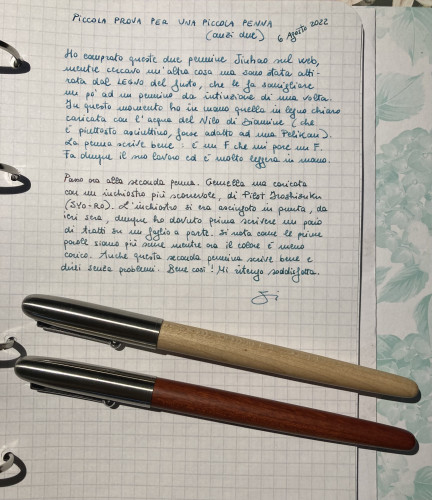 PICCOLA PROVA PER UNA PICCOLA PENNA
(anzi due) 6 Agosto 2022
Ho comprato queste due pennine Jinhao sul web,
mentre cercavo un'altra cosa ma sono stata atti-
rata dal LEGNO del fusto, che le fa somigliare
un po' ad un pennino da intinzione di una volta.
In questo momento ho in mano quella in legno chiaro
caricata con l'acqua del Nilo di Diamine (che
è piuttosto asciuttino, forse adatto ad una Pelikan).
La penna scrive bene: è un F che mi pare un F.
Fa dunque il suo lavoro ed è molto leggera in mano.
Passo ora alla seconda penna. Gemella ma caricata
con un inchiostro più scorrevole, di Pilot Iroshizuku
(SYO-RO). L'inchiostro si era asciugato in punta, da
ieri sera, dunque ho dovuto prima scrivere un paio
di tratti su un foglio a parte. Si nota come le prime
parole siano più scure mentre ora il colore è meno
carico. Anche questa seconda pennina scrive bene e
direi senza problemi. Bene così! Mi ritengo soddisfatta.